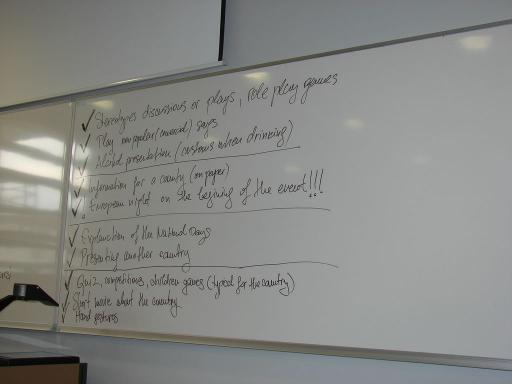 ✓ Stereotypes discussions or plays, role play games
✓ Play popular (comercial)
✓ Alcohol presentation (customs when drinking)
✓ Information for a country (on paper)
✓ European night on the begining of the event!!!
✓ Explanation of the National Days
✓ Presenting another country
✓ Quiz, competitions, children games (typical for the country)
✓ Short movie about the country
✓ Hand gestures